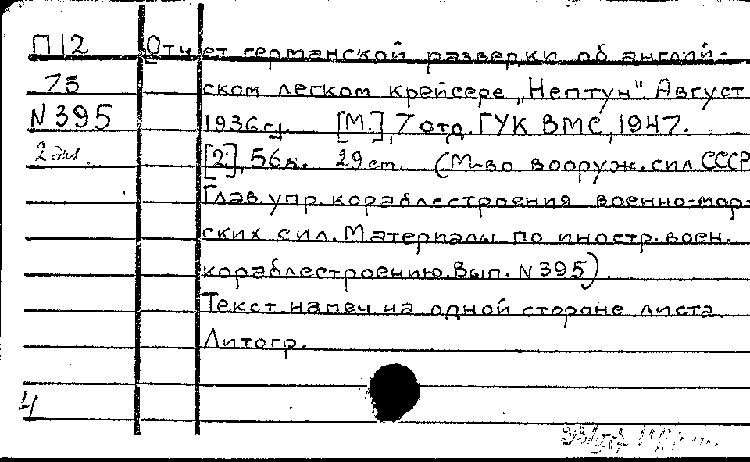 П12 Отчет германской разверки об англий-
73 ском легком крейсере „Нептун". Август
N 395 1936 г. [М.], 7 отд. ГУК ВМС, 1947.
2 экз. [2], 56 л. 29 см. (М-во вооруж. сил СССР
Глав. упр. кораблестроения военно-мор-
ских сил. Материалы по иностр. воен.
кораблестроению. Вып. N 395).
Текст напеч. на одной стороне листа
Литогр.
Ч